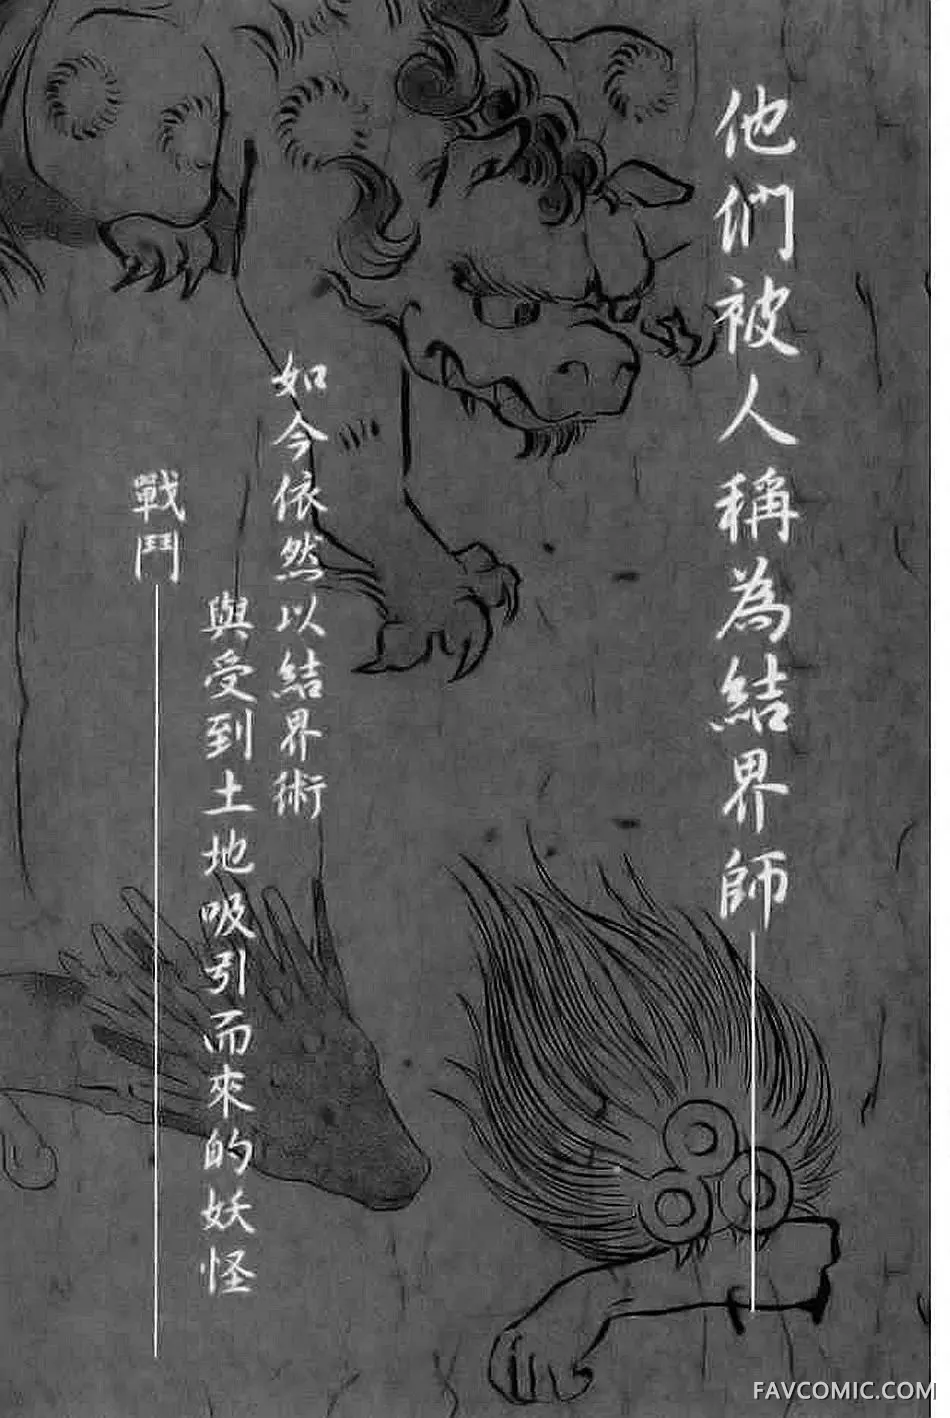 他們被人稱為結界師——
如今依然以結界術
與受到土地吸引而來的妖怪
戰鬥——
FAVCOMIC.COM